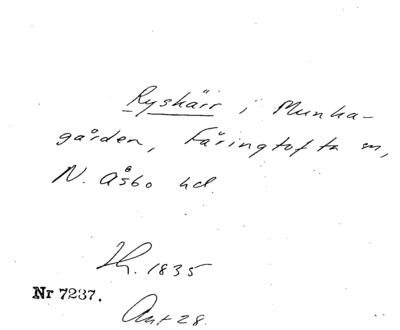 Ryskärr i Munka-
gården, Färingtofta sn,
N. Åsbo hd.
Th. 1835
Nr 7237.
Ant 28.